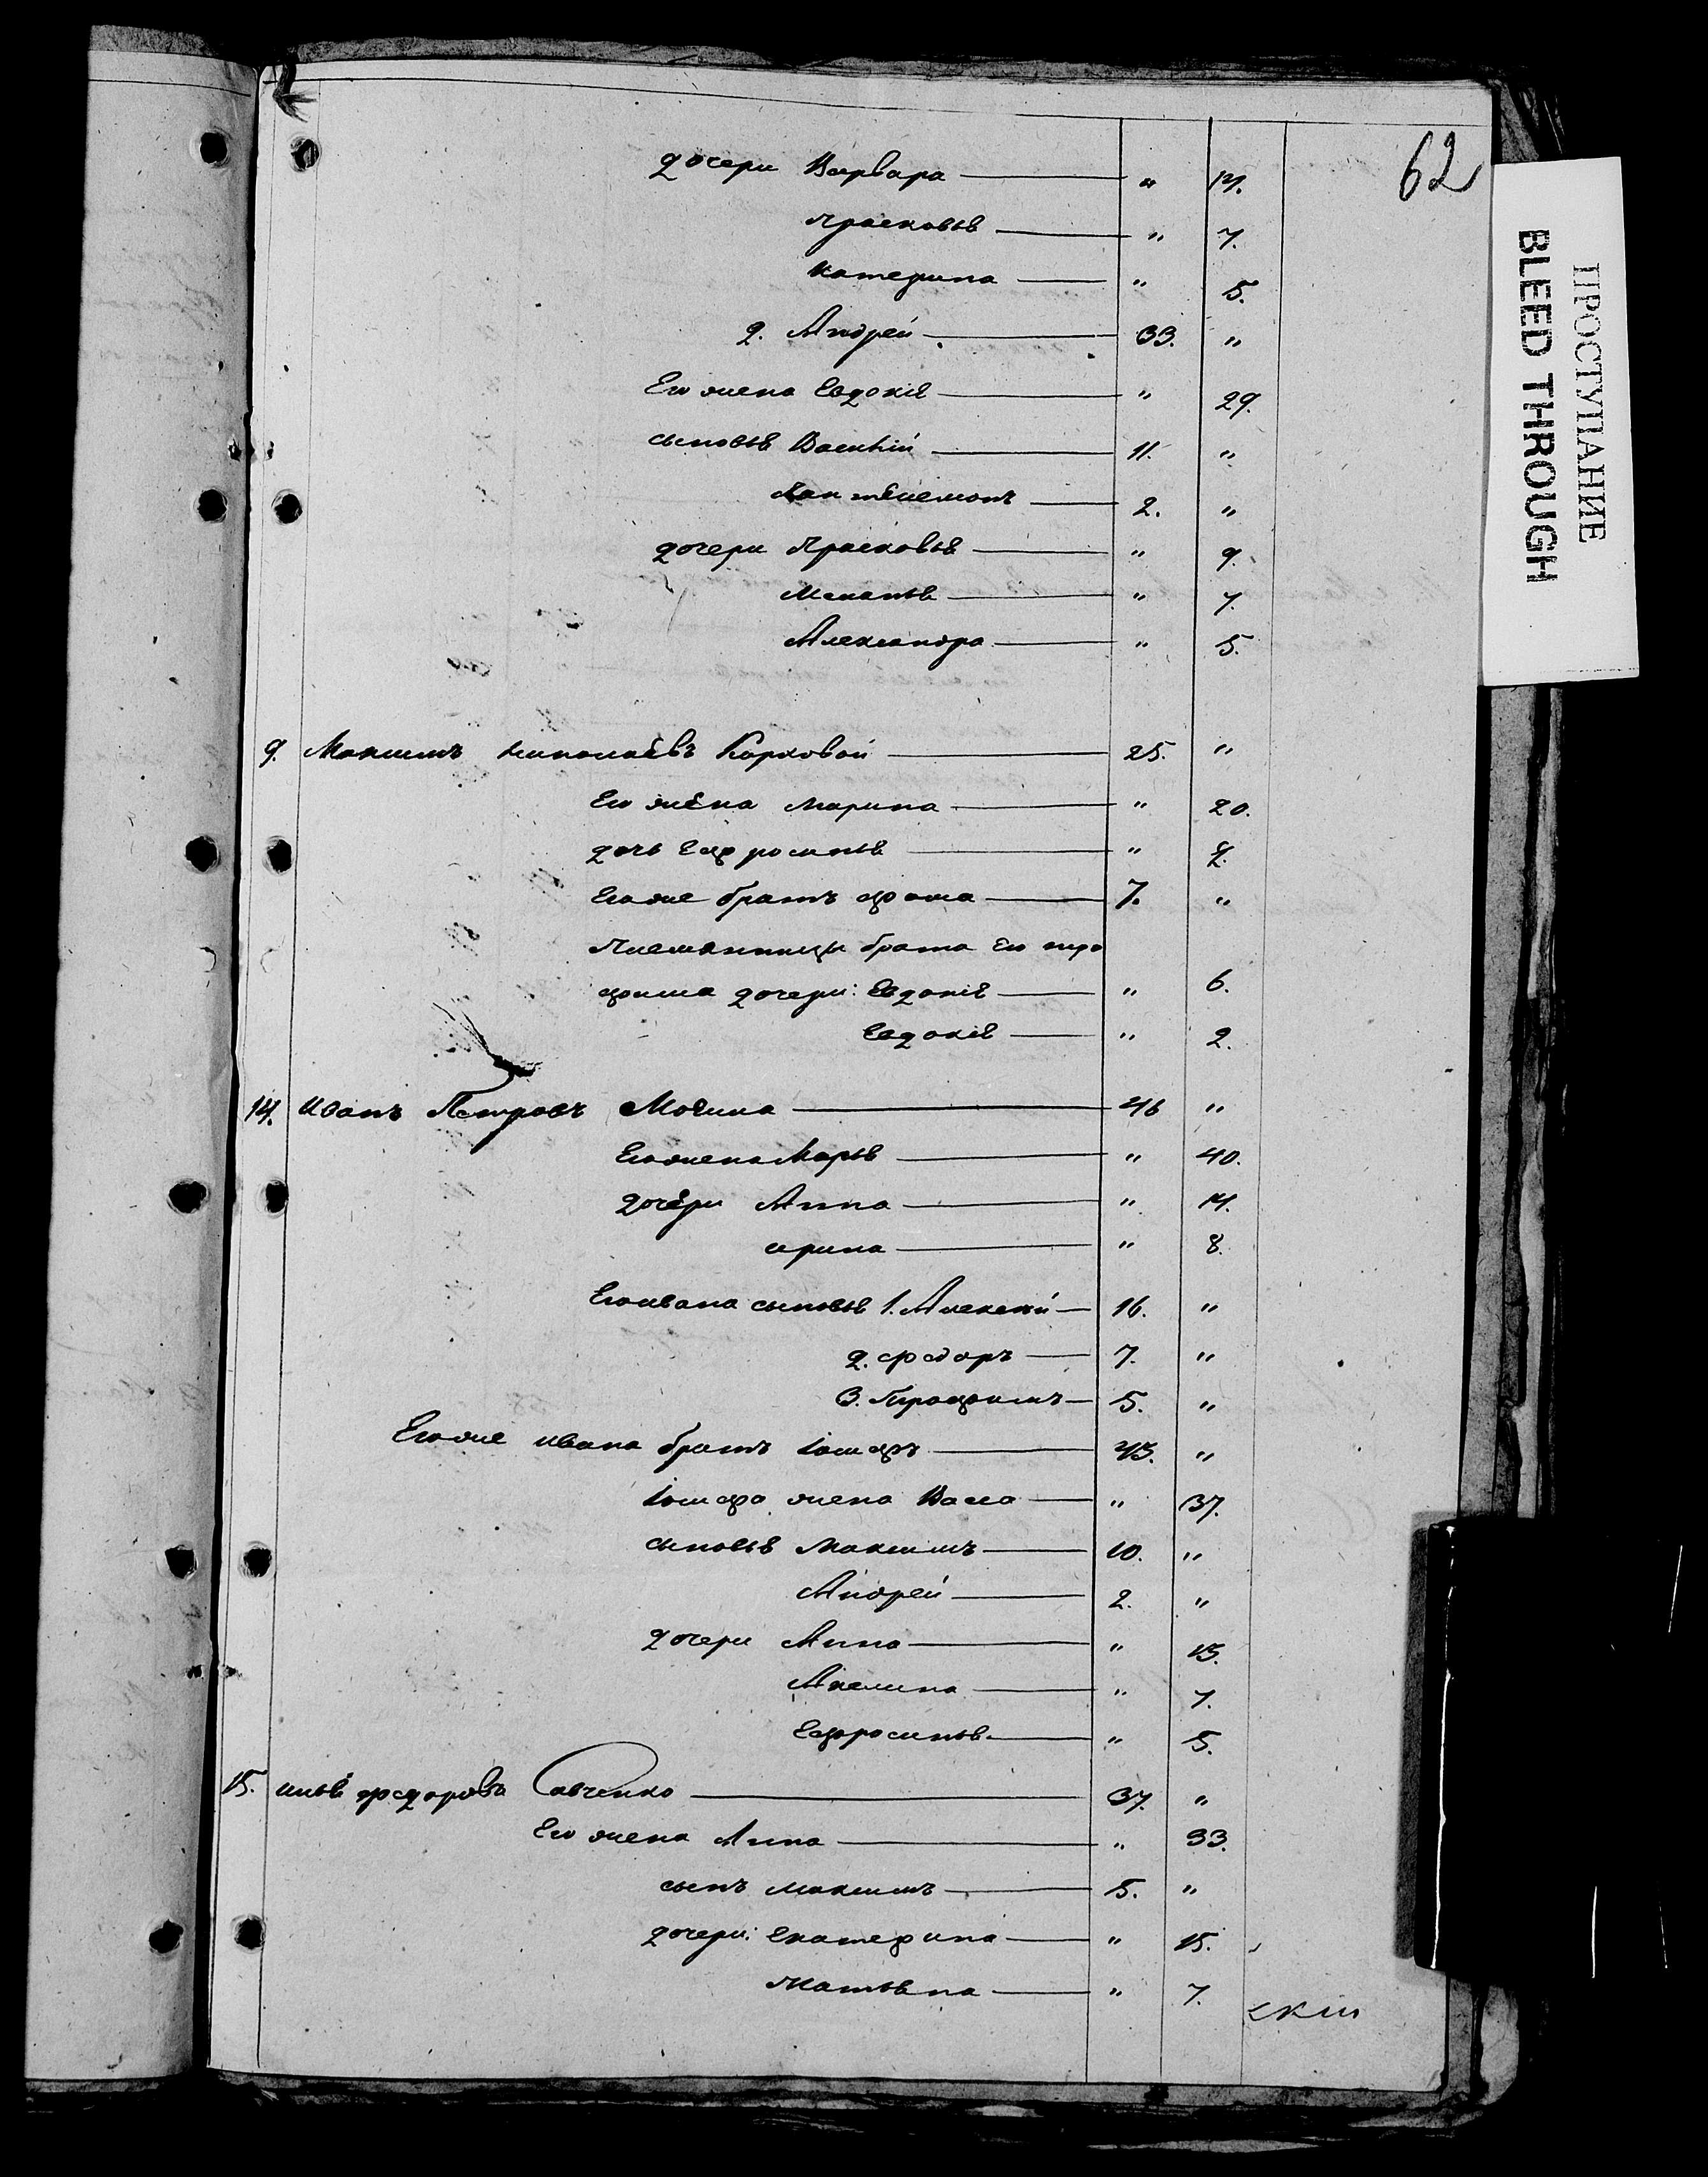 62
дочери Варвара — " 14.
Прасковья — " 7.
Катерина — " 5.
2. Андрей — 33. "
Его жена Евдокія — " 29.
сыновья Василій — 11. "
Пантелемонъ — 2. "
дочери Прасковья — " 9.
Меланья — " 7.
Александра — " 5.
9. Максимъ Николаевъ Корховой — 25. "
Его жена Марина — " 20.
дочь Ефросинья — "
Его же братъ Фома — 7. "
Племянницы брата Его тро
фима дочери: Евдокія — " 6.
Евдокія — " 2.
14. Иванъ Петровъ — 46 "
Его жена Марья — " 40.
дочери Анна — " 14.
Ирина — " 8.
Его Ивана сыновья 1. Алексей — 16. "
2. Федоръ — 7. "
3. Трофимъ — 5. "
Его же Ивана братъ Іосифъ — 43. "
Іосифа жена Васса — " 37.
сыновья Максимъ — 10. "
Андрей — 2. "
дочери Анна — " 13.
Акелина — " 7.
Ефросинья — " 5.
15. Илья Федоровъ Савченко — 37. "
Его жена Анна — " 33.
сынъ Максимъ — 5. "
дочери: Екатерина — " 15.
Татьяна — " 7.
ПРОСТУПАНИЕ
BLEED THROUGH